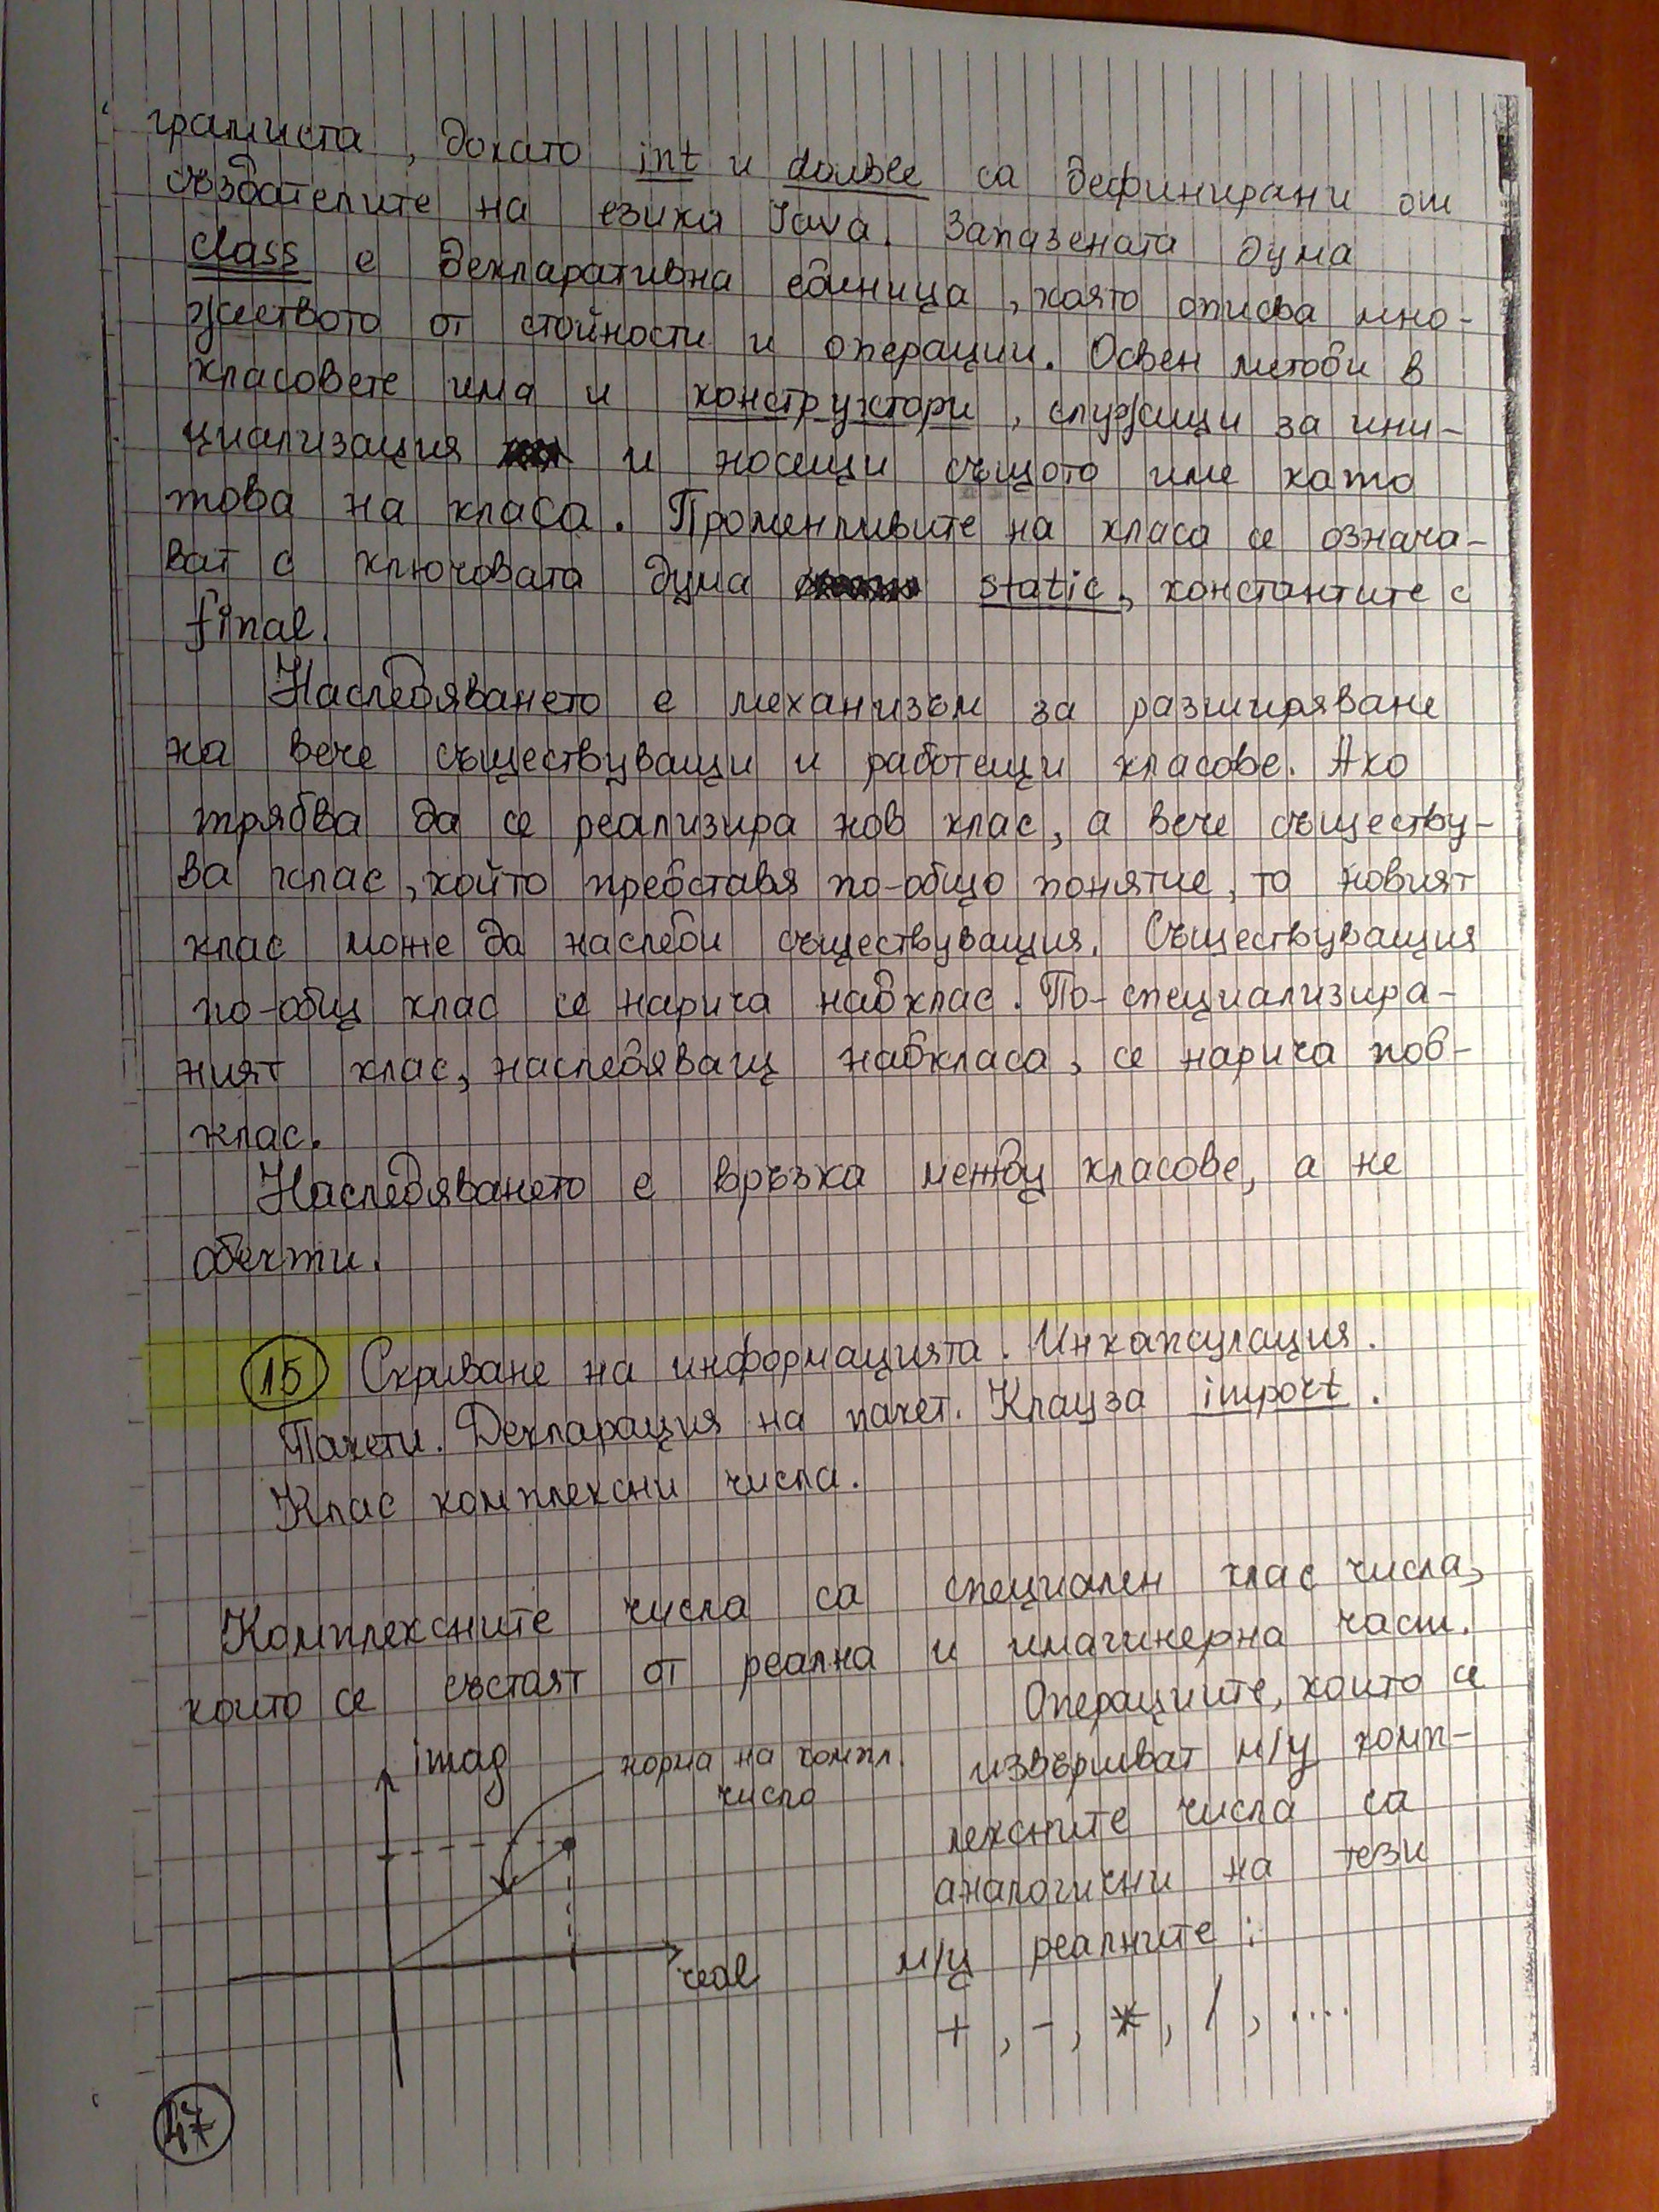 грамиста, докато int и double са дефинирани от
създателите на езика Java. Запазената дума
class е декларативна единица, която описва мно-
жеството от стойности и операции. Освен методи в
класовете има и конструктори, служащи за ини-
циализация и носещи същото име като
това на класа. Променливите на класа се означа-
ват с ключовата дума static, константите с
final.
Наследяването е механизъм за разширяване
на вече съществуващи и работещи класове. Ако
трябва да се реализира нов клас, а вече съществу-
ва клас, който представя по-общо понятие, то новият
клас може да наследи съществуващия. Съществуващия
по-общ клас се нарича надклас. По-специализира-
ният клас, наследяващ надкласа, се нарича под-
клас.
Наследяването е връзка между класове, а не
обекти.
15 Скриване на информацията. Инкапсулация.
Пакети. Декларация на пакет. Клауза import.
Клас комплексни числа.
Комплексните числа са специален клас числа,
които се състоят от реална и имагинерна част.
Операциите, които се
извършват м/у комп-
лексните числа са
аналогични на тези
м/у реалните:
+, -, *, /, ....
imag
норма на компл.
число
real
47